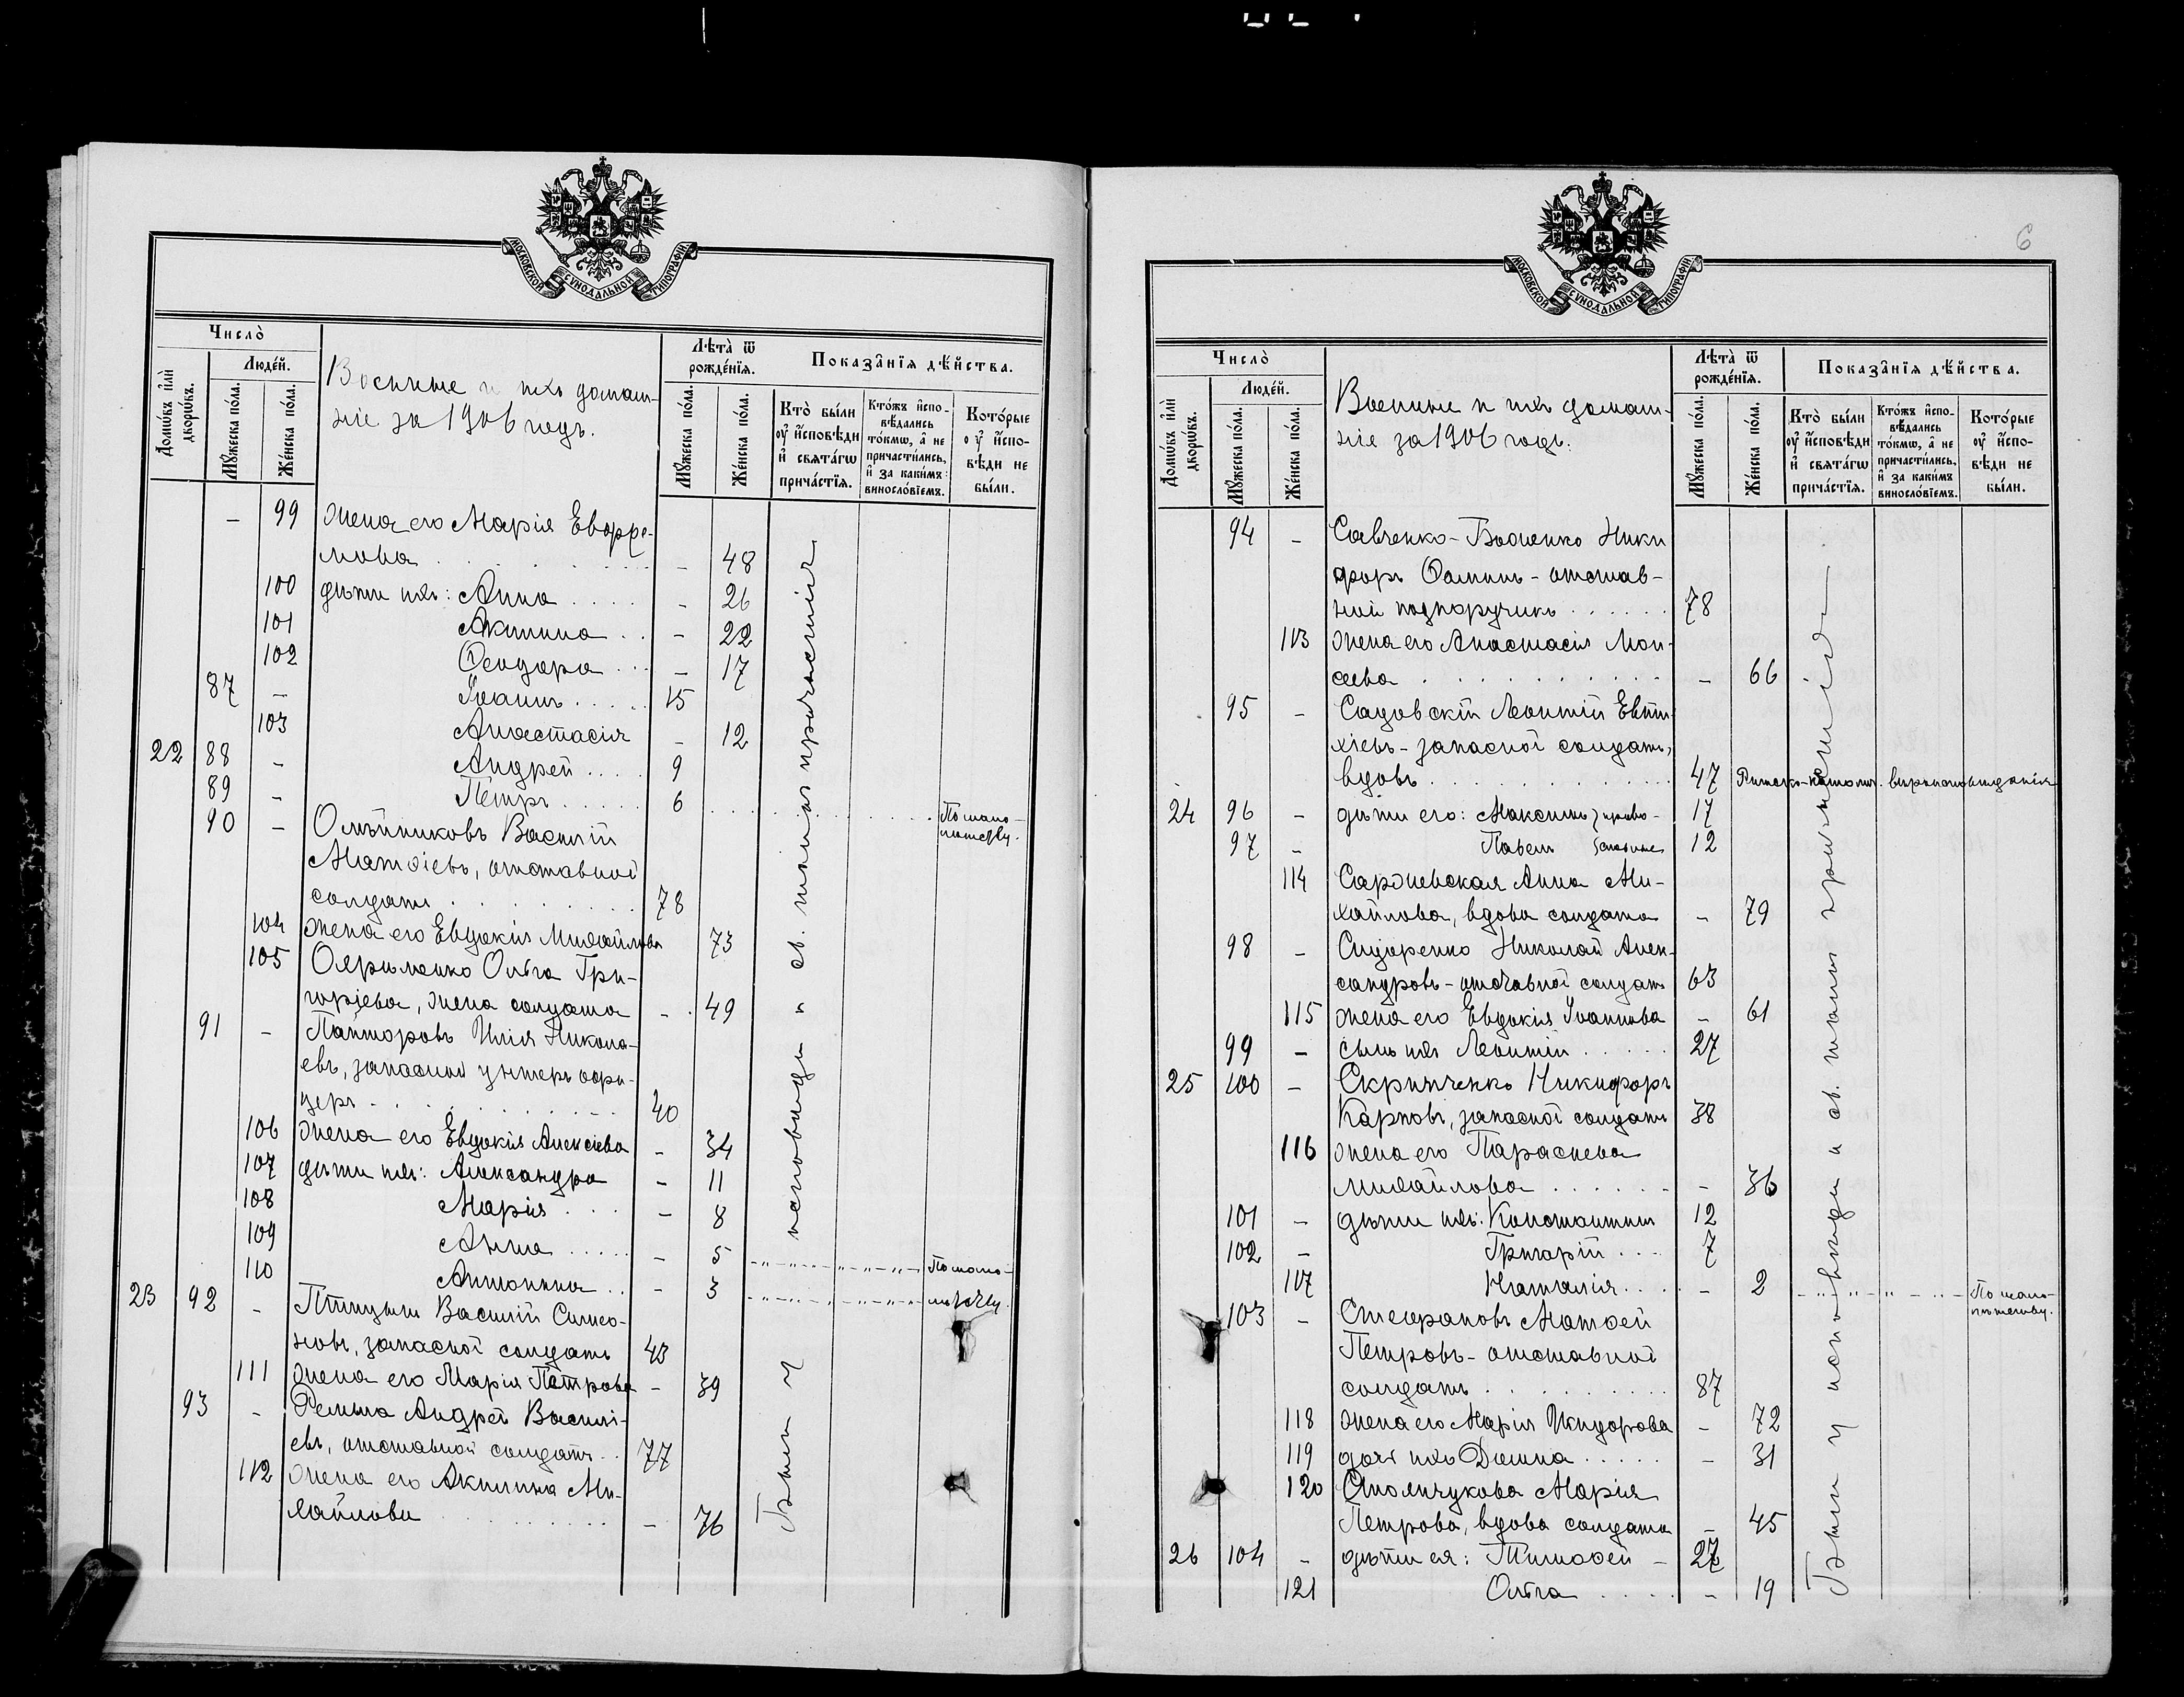 МОСКОВСКОЙ СѴНОДАЛЬНОЙ ТИПОГРАФІИ
Число̀
Люде́й.
Домѡ́въ и҆лѝ дворѡ́въ.
Мꙋ́жеска по́ла.
Же́нска по́ла.
Военные и ихъ домаш-
ніе за 1906 годъ.
Лѣ́та ѿ рожде́нїѧ.
Мꙋ́жеска по́ла.
Же́нска по́ла.
Показа̑нїѧ дѣ́йства.
Кто̀ бы́ли ᲂу҆ и҆́сповѣди и҆ свѧта́гѡ прича́стїѧ.
Кто́жъ и҆спо-вѣ́дались то́кмѡ, а҆ не причасти́лись, и҆ за каки́мъ винослоّ́вїемъ.
Кото́рые ᲂу҆ и҆́спо-вѣди не бы́ли.
– 99 жена его Марія Евфре-
мова . . . – 48
100 дѣти ихъ: Анна . . . . – 26
101 Акилина . . – 22
102 Ѳеодора . . . – 17
87 – Іоаннъ . . . . . 15
103 Анастасія – 12
22 88 – Андрей . . . . 9
89 – Петръ . . . . . 6 По мало-
лѣтству.
90 – Олѣйниковъ Василій
Матѳіевъ, отставной
солдатъ . . . . 78
104 жена его Евдокія Михайлова 73
105 Ольга Гри-
горіева, жена солдата – 49
91 – Илія Никола-
евъ, запасной унтеръ офи-
церъ . . . . 40
106 жена его Евдокія Алексіева – 34
107 дѣти ихъ: Александра – 11
108 Марія . . . – 8
109 Анна . . . . . – 5
110 Антонина . . – 3 По мало-
лѣтству.
23 92 – Птицынъ Василій Симео-
новъ, запасной солдатъ 43
111 жена его Марія Петрова – 39
93 – Андрей Василі-
евъ, отставной солдатъ . . 77
112 жена его Акилина Ми-
хайлова . . . . – 76
Были у исповѣди и св. таинъ причастія
6
МОСКОВСКОЙ СѴНОДАЛЬНОЙ ТИПОГРАФІИ
Число̀
Люде́й.
Домѡ́въ и҆лѝ дворѡ́въ.
Мꙋ́жеска по́ла.
Же́нска по́ла.
Военные и ихъ домаш-
ніе за 1906 годъ.
Лѣ́та ѿ рожде́нїѧ.
Мꙋ́жеска по́ла.
Же́нска по́ла.
Показа̑нїѧ дѣ́йства.
Кто̀ бы́ли ᲂу҆ и҆́сповѣди и҆ свѧта́гѡ прича́стїѧ.
Кто́жъ и҆спо-вѣ́дались то́кмѡ, а҆ не причасти́лись, и҆ за каки́мъ винослоّ́вїемъ.
Кото́рые ᲂу҆ и҆́спо-вѣди не бы́ли.
94 – Савченко- Ники
форъ Ѳоминъ - отстав-
ной подпоручикъ . . . . . . 78
113 жена его Анастасія Мои-
сеева . . . . – 66
95 – Садовскій Леонтій Евти-
хіевъ - запасной солдатъ,
вдовъ . . . . 47 Римско-католич. вѣроисповѣданія
24 96 – дѣти его: Максимъ } право- 17
97 – Павелъ } славные 12
114 Анна Ми-
хайлова, вдова солдата – 79
98 – Сидоренко Николай Алек-
сандровъ - отставной солдатъ 63
115 жена его Евдокія Іоаннова – 61
99 – сынъ ихъ Леонтій . . . . . 27
25 100 – Скрипченко Никифоръ
Карповъ, запасной солдатъ 38
116 жена его Параскева
Михайлова . . . . . . – 36
101 – дѣти ихъ: Константинъ 12
102 – Григорій . . . 7
117 Наталія . . . . – 2 По мало-
лѣтству.
103 – Стефановъ Матѳей
Петровъ - отставной
солдатъ . . . . 87
118 жена его Марія Исидорова – 72
119 дочь ихъ Домна . . . . . – 31
120 Марія
Петрова, вдова солдата – 45
26 104 – дѣти ея: Тимоѳей – 27
121 Ольга . . . . – 19
Были у исповѣди и св. таинъ причастія